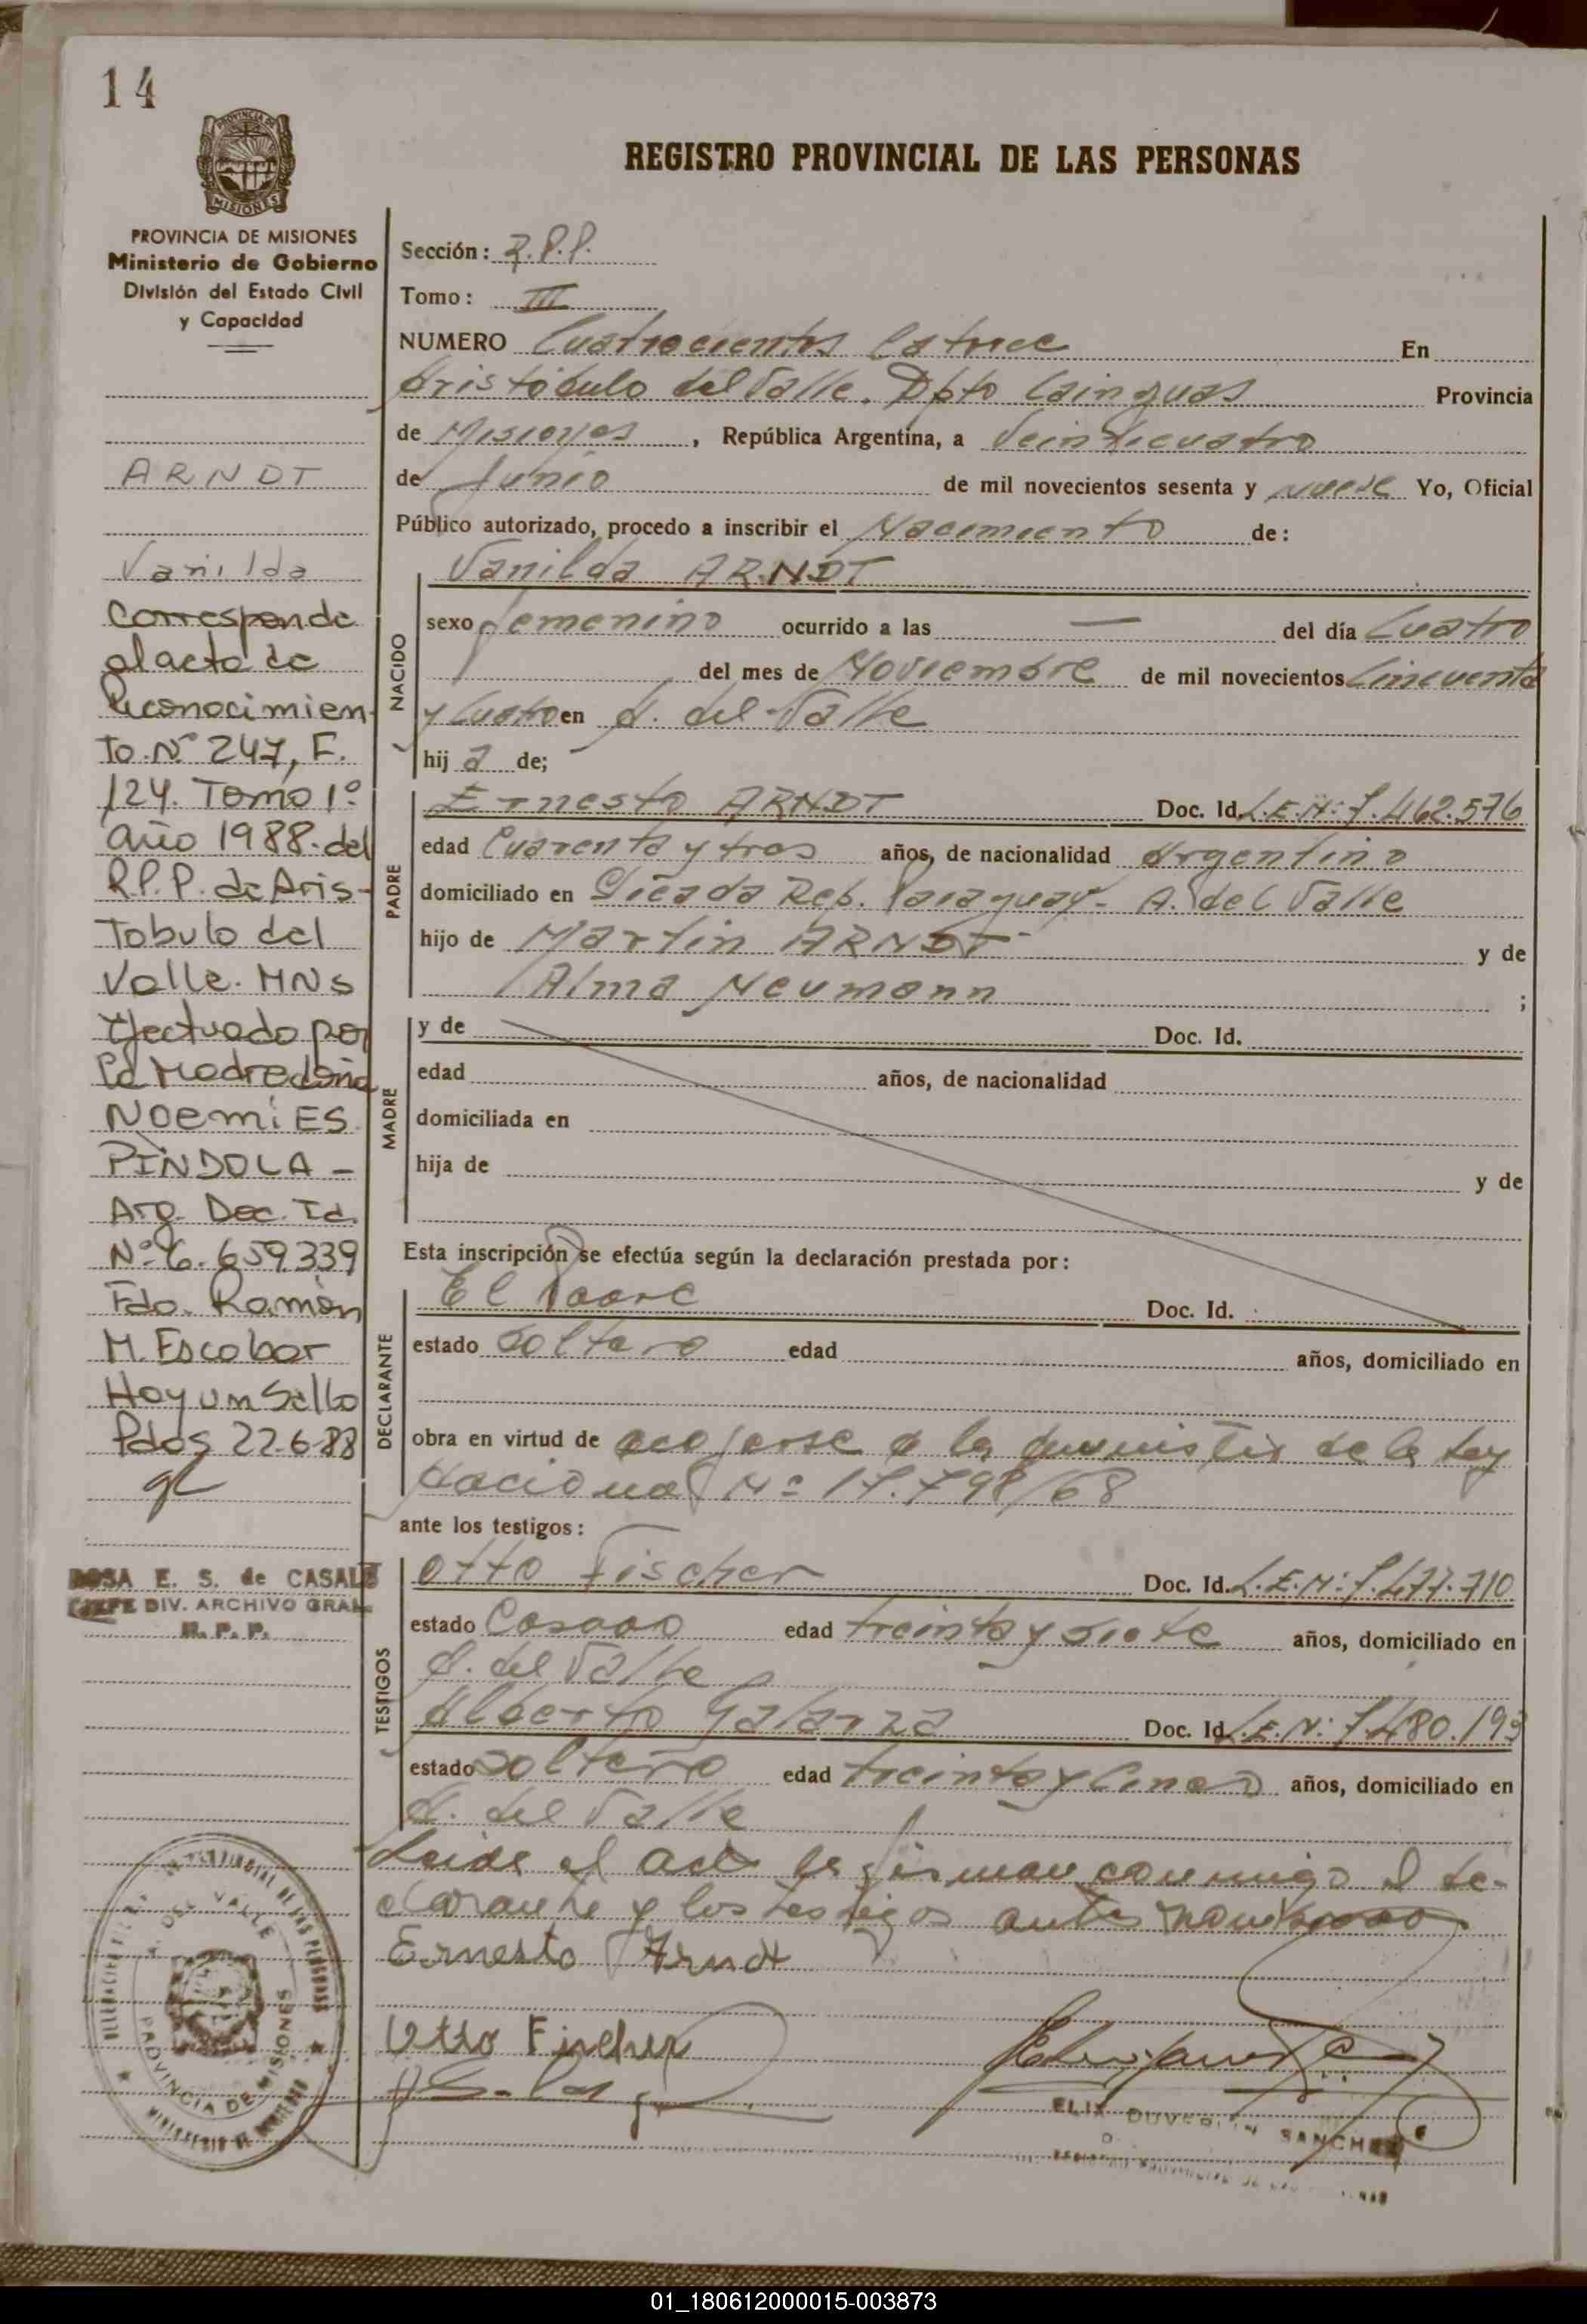 14
REGISTRO PROVINCIAL DE LAS PERSONAS
PROVINCIA DE MISIONES
Ministerio de Gobierno
División del Estado Civil
y Capacidad
ARNDT
Vanilda
Corresponde
al acta de
Reconocimien-
to Nº 247, F.
124. Tomo 1º
año 1988. del
R.P.P. de Aris-
tobulo del
Valle. MNS
Efectuado por
La Madre doña
NOEMI ES
PINDOLA -
Arg. Doc. Id.
Nº 6.659.339
Fdo. Ramón
M. Escobar
Hay un Sello
Pdas 22-6-88
ROSA E. S. de CASALE
JEFE DIV. ARCHIVO GRAL.
R. P. P.
Sección: R.P.P.
Tomo: III
NUMERO Cuatrocientos Catorce En
Aristóbulo del Valle. Dpto Cainguas Provincia
de Misiones, República Argentina, a Veinticuatro
de Junio de mil novecientos sesenta y nueve Yo, Oficial
Público autorizado, procedo a inscribir el Nacimiento de:
Vanilda ARNDT
NACIDO
sexo femenino ocurrido a las — del día Cuatro
del mes de Noviembre de mil novecientos Cincuenta
y Cuatro en A. del Valle
hij a de;
PADRE
Ernesto ARNDT Doc. Id. L.E.N: 7.462.576
edad Cuarenta y tres años, de nacionalidad Argentino
domiciliado en Picada Rep. Paraguay - A. del Valle
hijo de Martin ARNDT y de
Alma Neumann ;
MADRE
y de Doc. Id.
edad años, de nacionalidad
domiciliada en
hija de y de
Esta inscripción se efectúa según la declaración prestada por:
DECLARANTE
El Padre Doc. Id.
estado Soltero edad años, domiciliado en
obra en virtud de acojerse a la amnistia de la Ley
Nacional Nº 17.798/68
ante los testigos:
TESTIGOS
Otto Fischer Doc. Id. L.E.N: 7.477.710
estado Casado edad treinta y siete años, domiciliado en
A. del Valle
Alberto Galarza Doc. Id. L.E.N: 7.480.193
estado Soltero edad treinta y Cinco años, domiciliado en
A. del Valle
Leida el acta la firman conmigo el de-
clarante y los testigos antes nombrados
Ernesto Arndt
Otto Fischer
SANCHEZ
A. DEL VALLE
PROVINCIA DE MISIONES
01_180612000015-003873